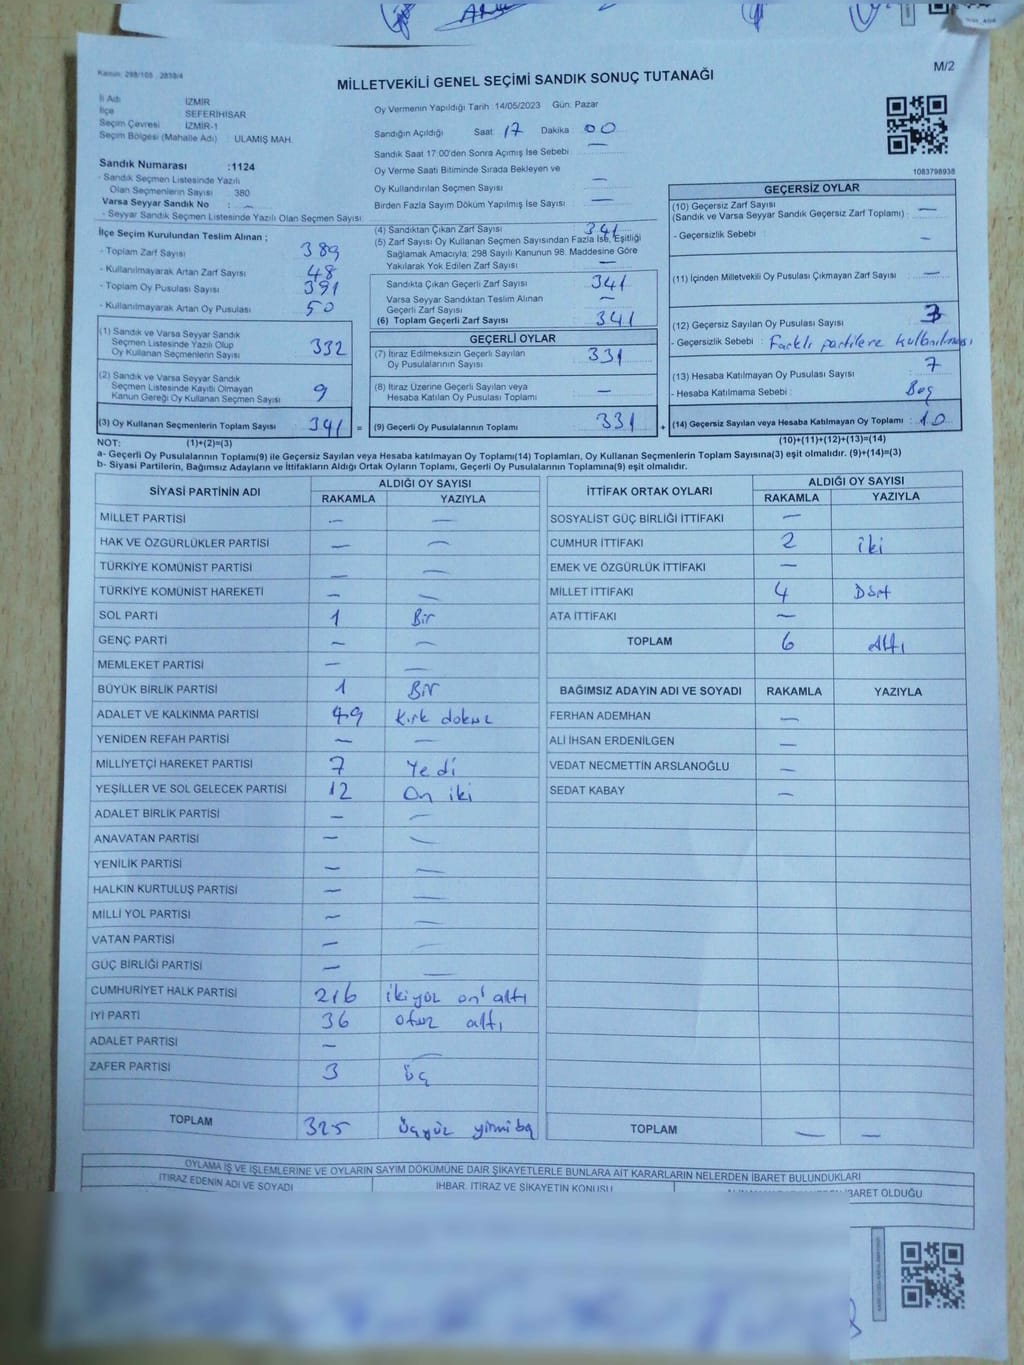 Kanun: 298/105 , 2839/4
M/2
MİLLETVEKİLİ GENEL SEÇİMİ SANDIK SONUÇ TUTANAĞI
İl Adı İZMİR
İlçe SEFERİHİSAR
Seçim Çevresi İZMİR-1
Seçim Bölgesi (Mahalle Adı) ULAMIŞ MAH.
Sandık Numarası :1124
- Sandık Seçmen Listesinde Yazılı
Olan Seçmenlerin Sayısı 380
Varsa Seyyar Sandık No : —
- Seyyar Sandık Seçmen Listesinde Yazılı Olan Seçmen Sayısı
Oy Vermenin Yapıldığı Tarih :14/05/2023 Gün: Pazar
Sandığın Açıldığı Saat 17 Dakika 00
Sandık Saat 17:00'den Sonra Açımış İse Sebebi : —
Oy Verme Saati Bitiminde Sırada Bekleyen ve
Oy Kullandırılan Seçmen Sayısı —
Birden Fazla Sayım Döküm Yapılmış İse Sayısı —
1083798938
İlçe Seçim Kurulundan Teslim Alınan ;
- Toplam Zarf Sayısı 389
- Kullanılmayarak Artan Zarf Sayısı 48
- Toplam Oy Pusulası Sayısı 391
- Kullanılmayarak Artan Oy Pusulası 50
(1) Sandık ve Varsa Seyyar Sandık
Seçmen Listesinde Yazılı Olup
Oy Kullanan Seçmenlerin Sayısı 332
(2) Sandık ve Varsa Seyyar Sandık
Seçmen Listesinde Kayıtlı Olmayan
Kanun Gereği Oy Kullanan Seçmen Sayısı 9
(3) Oy Kullanan Seçmenlerin Toplam Sayısı 341 =
(4) Sandıktan Çıkan Zarf Sayısı 341
(5) Zarf Sayısı Oy Kullanan Seçmen Sayısından Fazla İse, Eşitliği
Sağlamak Amacıyla; 298 Sayılı Kanunun 98. Maddesine Göre
Yakılarak Yok Edilen Zarf Sayısı —
Sandıkta Çıkan Geçerli Zarf Sayısı 341
Varsa Seyyar Sandıktan Teslim Alınan
Geçerli Zarf Sayısı —
(6) Toplam Geçerli Zarf Sayısı 341
GEÇERLİ OYLAR
(7) İtiraz Edilmeksizin Geçerli Sayılan
Oy Pusulalarının Sayısı 331
(8) İtiraz Üzerine Geçerli Sayılan veya
Hesaba Katılan Oy Pusulası Toplamı —
(9) Geçerli Oy Pusulalarının Toplamı 331 +
GEÇERSİZ OYLAR
(10) Geçersiz Zarf Sayısı
(Sandık ve Varsa Seyyar Sandık Geçersiz Zarf Toplamı) —
- Geçersizlik Sebebi : —
(11) İçinden Milletvekili Oy Pusulası Çıkmayan Zarf Sayısı —
(12) Geçersiz Sayılan Oy Pusulası Sayısı 3
- Geçersizlik Sebebi : Farklı partilere kullanılması
(13) Hesaba Katılmayan Oy Pusulası Sayısı 7
- Hesaba Katılmama Sebebi : Boş
(14) Geçersiz Sayılan veya Hesaba Katılmayan Oy Toplamı : 10
NOT: (1)+(2)=(3) (10)+(11)+(12)+(13)=(14)
a- Geçerli Oy Pusulalarının Toplamı(9) ile Geçersiz Sayılan veya Hesaba katılmayan Oy Toplamı(14) Toplamları, Oy Kullanan Seçmenlerin Toplam Sayısına(3) eşit olmalıdır. (9)+(14)=(3)
b- Siyasi Partilerin, Bağımsız Adayların ve İttifakların Aldığı Ortak Oyların Toplamı, Geçerli Oy Pusulalarının Toplamına(9) eşit olmalıdır.
SİYASİ PARTİNİN ADI ALDIĞI OY SAYISI
RAKAMLA YAZIYLA
MİLLET PARTİSİ — —
HAK VE ÖZGÜRLÜKLER PARTİSİ — —
TÜRKİYE KOMÜNİST PARTİSİ — —
TÜRKİYE KOMÜNİST HAREKETİ — —
SOL PARTİ 1 Bir
GENÇ PARTİ — —
MEMLEKET PARTİSİ — —
BÜYÜK BİRLİK PARTİSİ 1 Bir
ADALET VE KALKINMA PARTİSİ 49 Kırk dokuz
YENİDEN REFAH PARTİSİ — —
MİLLİYETÇİ HAREKET PARTİSİ 7 Yedi
YEŞİLLER VE SOL GELECEK PARTİSİ 12 On iki
ADALET BİRLİK PARTİSİ — —
ANAVATAN PARTİSİ — —
YENİLİK PARTİSİ — —
HALKIN KURTULUŞ PARTİSİ — —
MİLLİ YOL PARTİSİ — —
VATAN PARTİSİ — —
GÜÇ BİRLİĞİ PARTİSİ — —
CUMHURİYET HALK PARTİSİ 216 ikiyüz on altı
İYİ PARTİ 36 otuz altı
ADALET PARTİSİ — —
ZAFER PARTİSİ 3 üç
TOPLAM 325 üçyüz yirmibeş
İTTİFAK ORTAK OYLARI ALDIĞI OY SAYISI
RAKAMLA YAZIYLA
SOSYALİST GÜÇ BİRLİĞİ İTTİFAKI —
CUMHUR İTTİFAKI 2 iki
EMEK VE ÖZGÜRLÜK İTTİFAKI —
MİLLET İTTİFAKI 4 Dört
ATA İTTİFAKI —
TOPLAM 6 Altı
BAĞIMSIZ ADAYIN ADI VE SOYADI RAKAMLA YAZIYLA
FERHAN ADEMHAN —
ALİ İHSAN ERDENİLGEN —
VEDAT NECMETTİN ARSLANOĞLU —
SEDAT KABAY —
TOPLAM — —
OYLAMA İŞ VE İŞLEMLERİNE VE OYLARIN SAYIM DÖKÜMÜNE DAİR ŞİKAYETLERLE BUNLARA AİT KARARLARIN NELERDEN İBARET BULUNDUKLARI
İTİRAZ EDENİN ADI VE SOYADI İHBAR, İTİRAZ VE ŞİKAYETİN KONUSU İBARET OLDUĞU